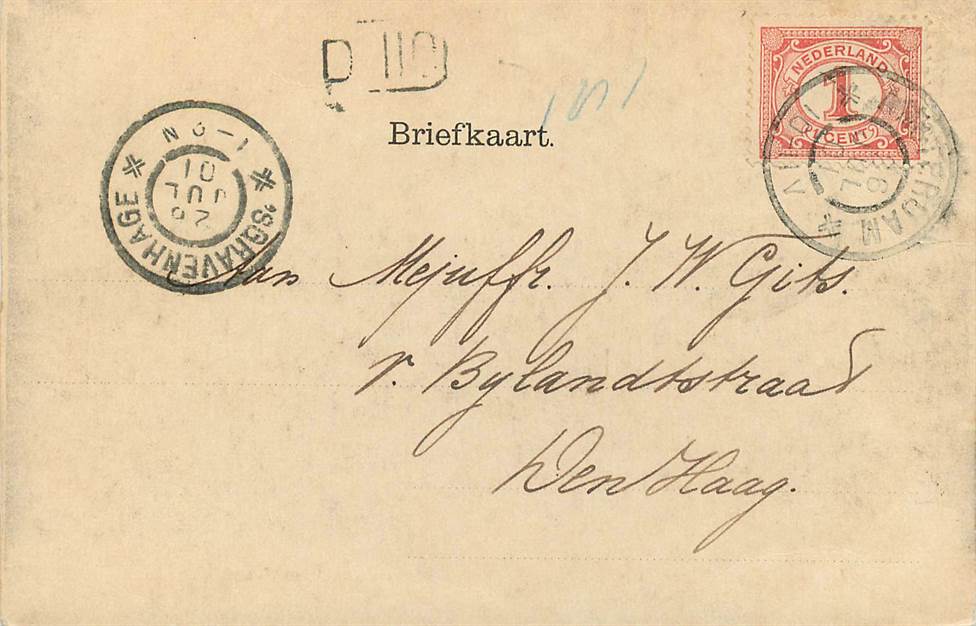 D 110
NEDERLAND
1
CENT
Briefkaart.
'SGRAVENHAGE
N 6-1
26
JUL
01
Aan Mejuffr. J. W. Gits.
v. Bylandtstraat
Den Haag.